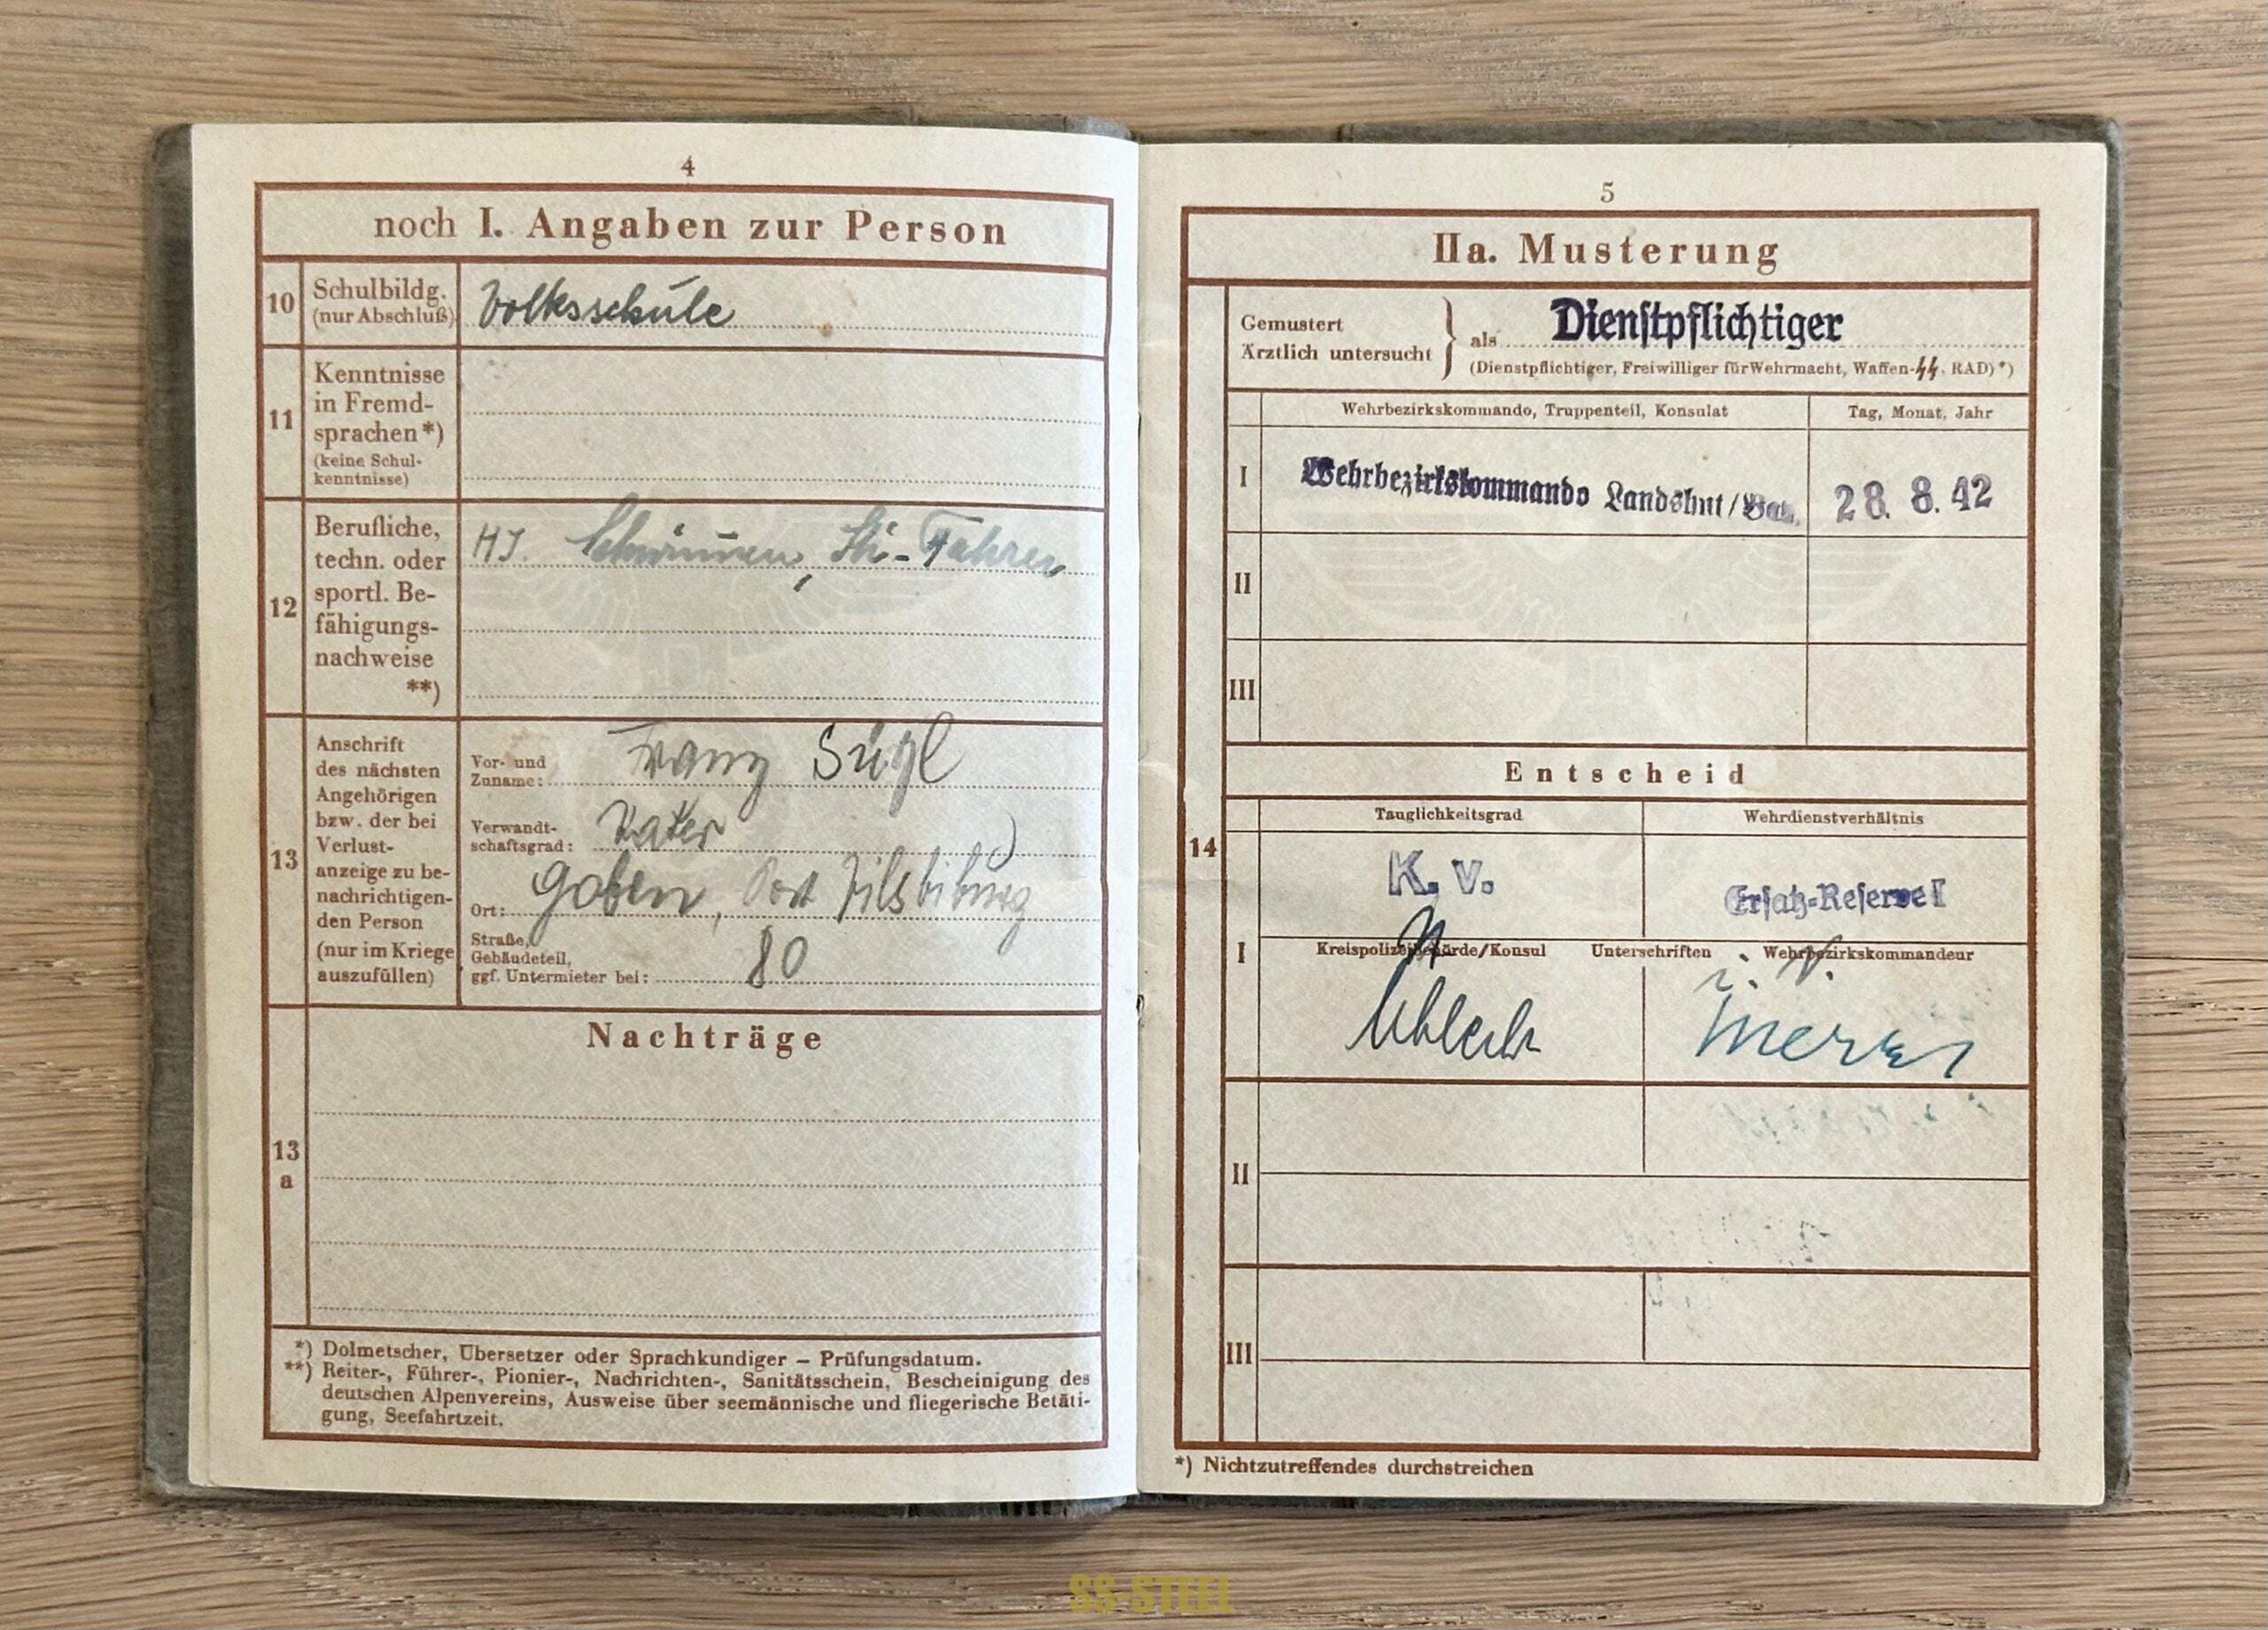 4
noch I. Angaben zur Person
10 Schulbildg. (nur Abschluß) Volksschule
11 Kenntnisse in Fremd- sprachen *) (keine Schul- kenntnisse)
12 Berufliche, techn. oder sportl. Be- fähigungs- nachweise **)
HJ. Schwimmen, Ski-Fahren
13 Anschrift des nächsten Angehörigen bzw. der bei Verlust- anzeige zu be- nachrichtigen- den Person (nur im Kriege auszufüllen)
Vor- und Zuname: Franz
Verwandt- schaftsgrad: Vater
Ort: Post Vilsbiburg
Straße, Gebäudeteil, ggf. Untermieter bei: 80
13 a
Nachträge
*) Dolmetscher, Übersetzer oder Sprachkundiger – Prüfungsdatum.
**) Reiter-, Führer-, Pionier-, Nachrichten-, Sanitätsschein, Bescheinigung des
deutschen Alpenvereins, Ausweise über seemännische und fliegerische Betäti-
gung, Seefahrtzeit.
5
IIa. Musterung
Gemustert
Ärztlich untersucht } als Dienstpflichtiger
(Dienstpflichtiger, Freiwilliger für Wehrmacht, Waffen-SS, RAD) *)
Wehrbezirkskommando, Truppenteil, Konsulat Tag, Monat, Jahr
I Wehrbezirkskommando Landshut / Bay. 28. 8. 42
II
III
Entscheid
14
Tauglichkeitsgrad Wehrdienstverhältnis
I K. v. Ersatz-Reserve I
Kreispolizeibehörde/Konsul Unterschriften Wehrbezirkskommandeur
i. V.
II
III
*) Nichtzutreffendes durchstreichen
SS-STEEL